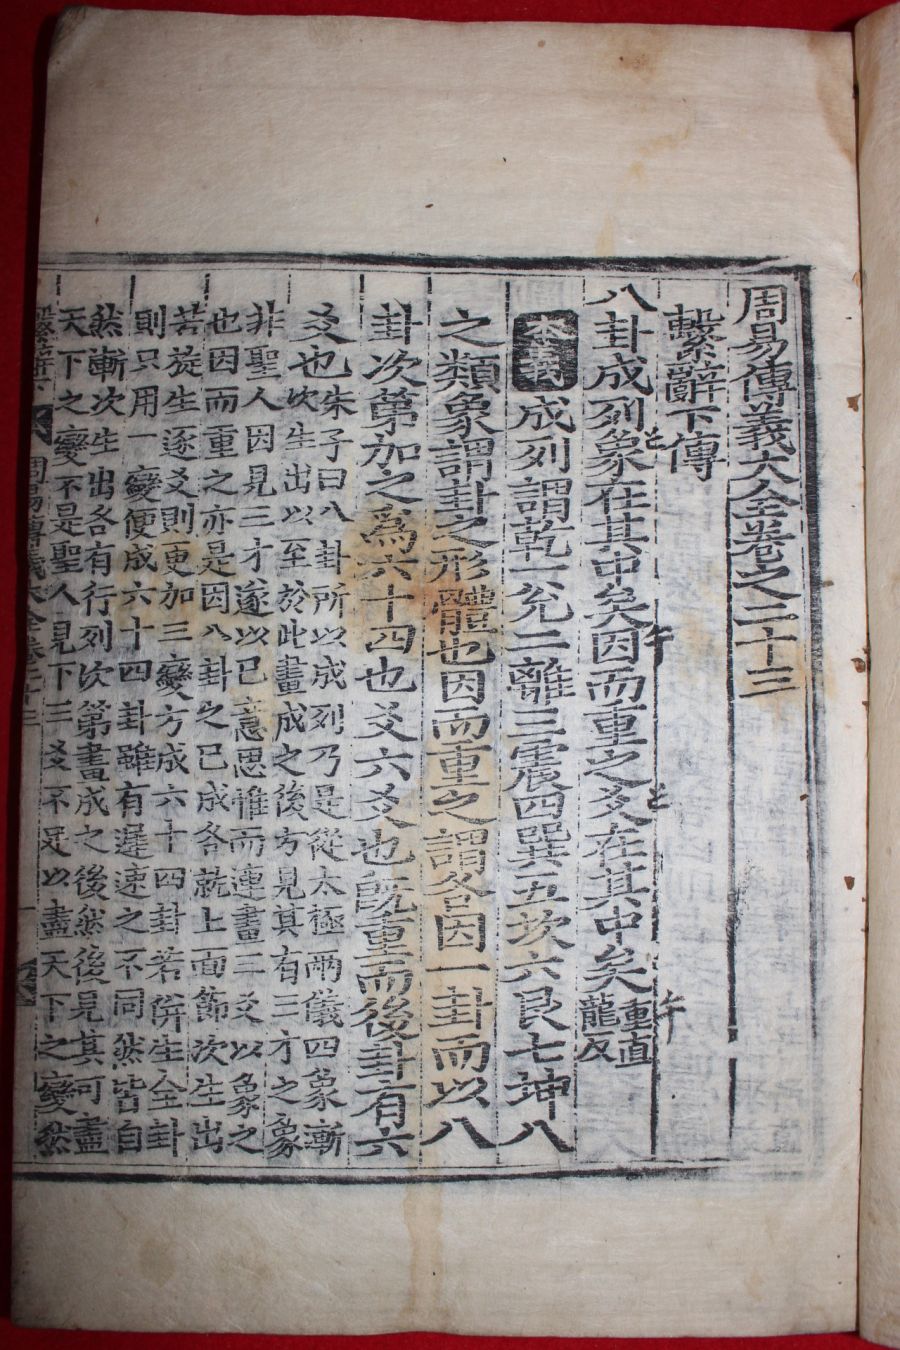 周易傳義大全卷之二十三
繫辭下傳
八卦成列象在其中矣因而重之爻在其中矣重直龍反
本義成列謂乾一兌二離三震四巽五坎六艮七坤八
之類象謂卦之形體也因而重之謂各因一卦而以八
卦次第加之爲六十四也爻六爻也旣重而後卦有六
爻也朱子曰八卦所以成列乃是從太極兩儀四象漸
次生出以至於此畫成之後方見其有三才之象
非聖人因見三才遂以己意思惟而連畫三爻以象之
也因而重之亦是因八卦之已成各就上面節次生出
若旋生逐爻則更加三變方成六十四卦若倂生全卦
則只用一變便成六十四卦雖有遲速之不同然皆自
然漸次生出各有行列次第畫成之後然後見其可盡
天下之變不是聖人見下三爻不足以盡天下之變然
繫辭下 周易傳義大全卷之二十三